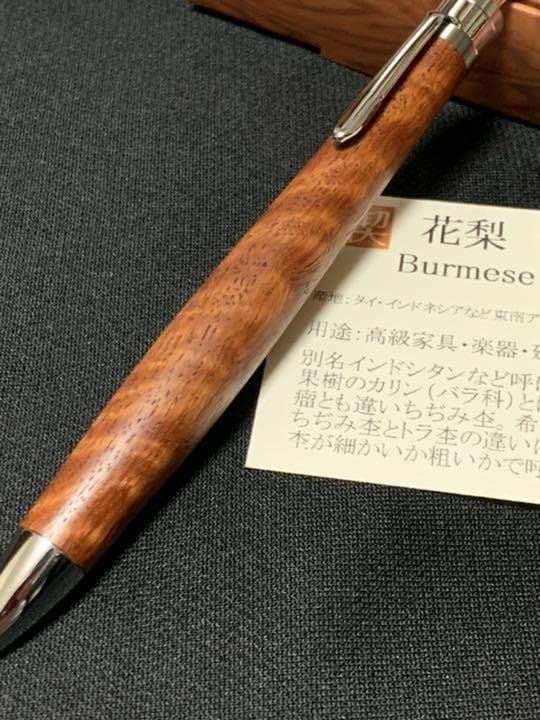 契 花梨
Burmese
産地:タイ・インドネシアなど東南ア
用途:高級家具・楽器・
別名インドシタンなど呼
果樹のカリン(バラ科)と
瘤とも違いちぢみ杢。希
ちぢみ杢とトラ杢の違い
杢が細かいか粗いかで呼